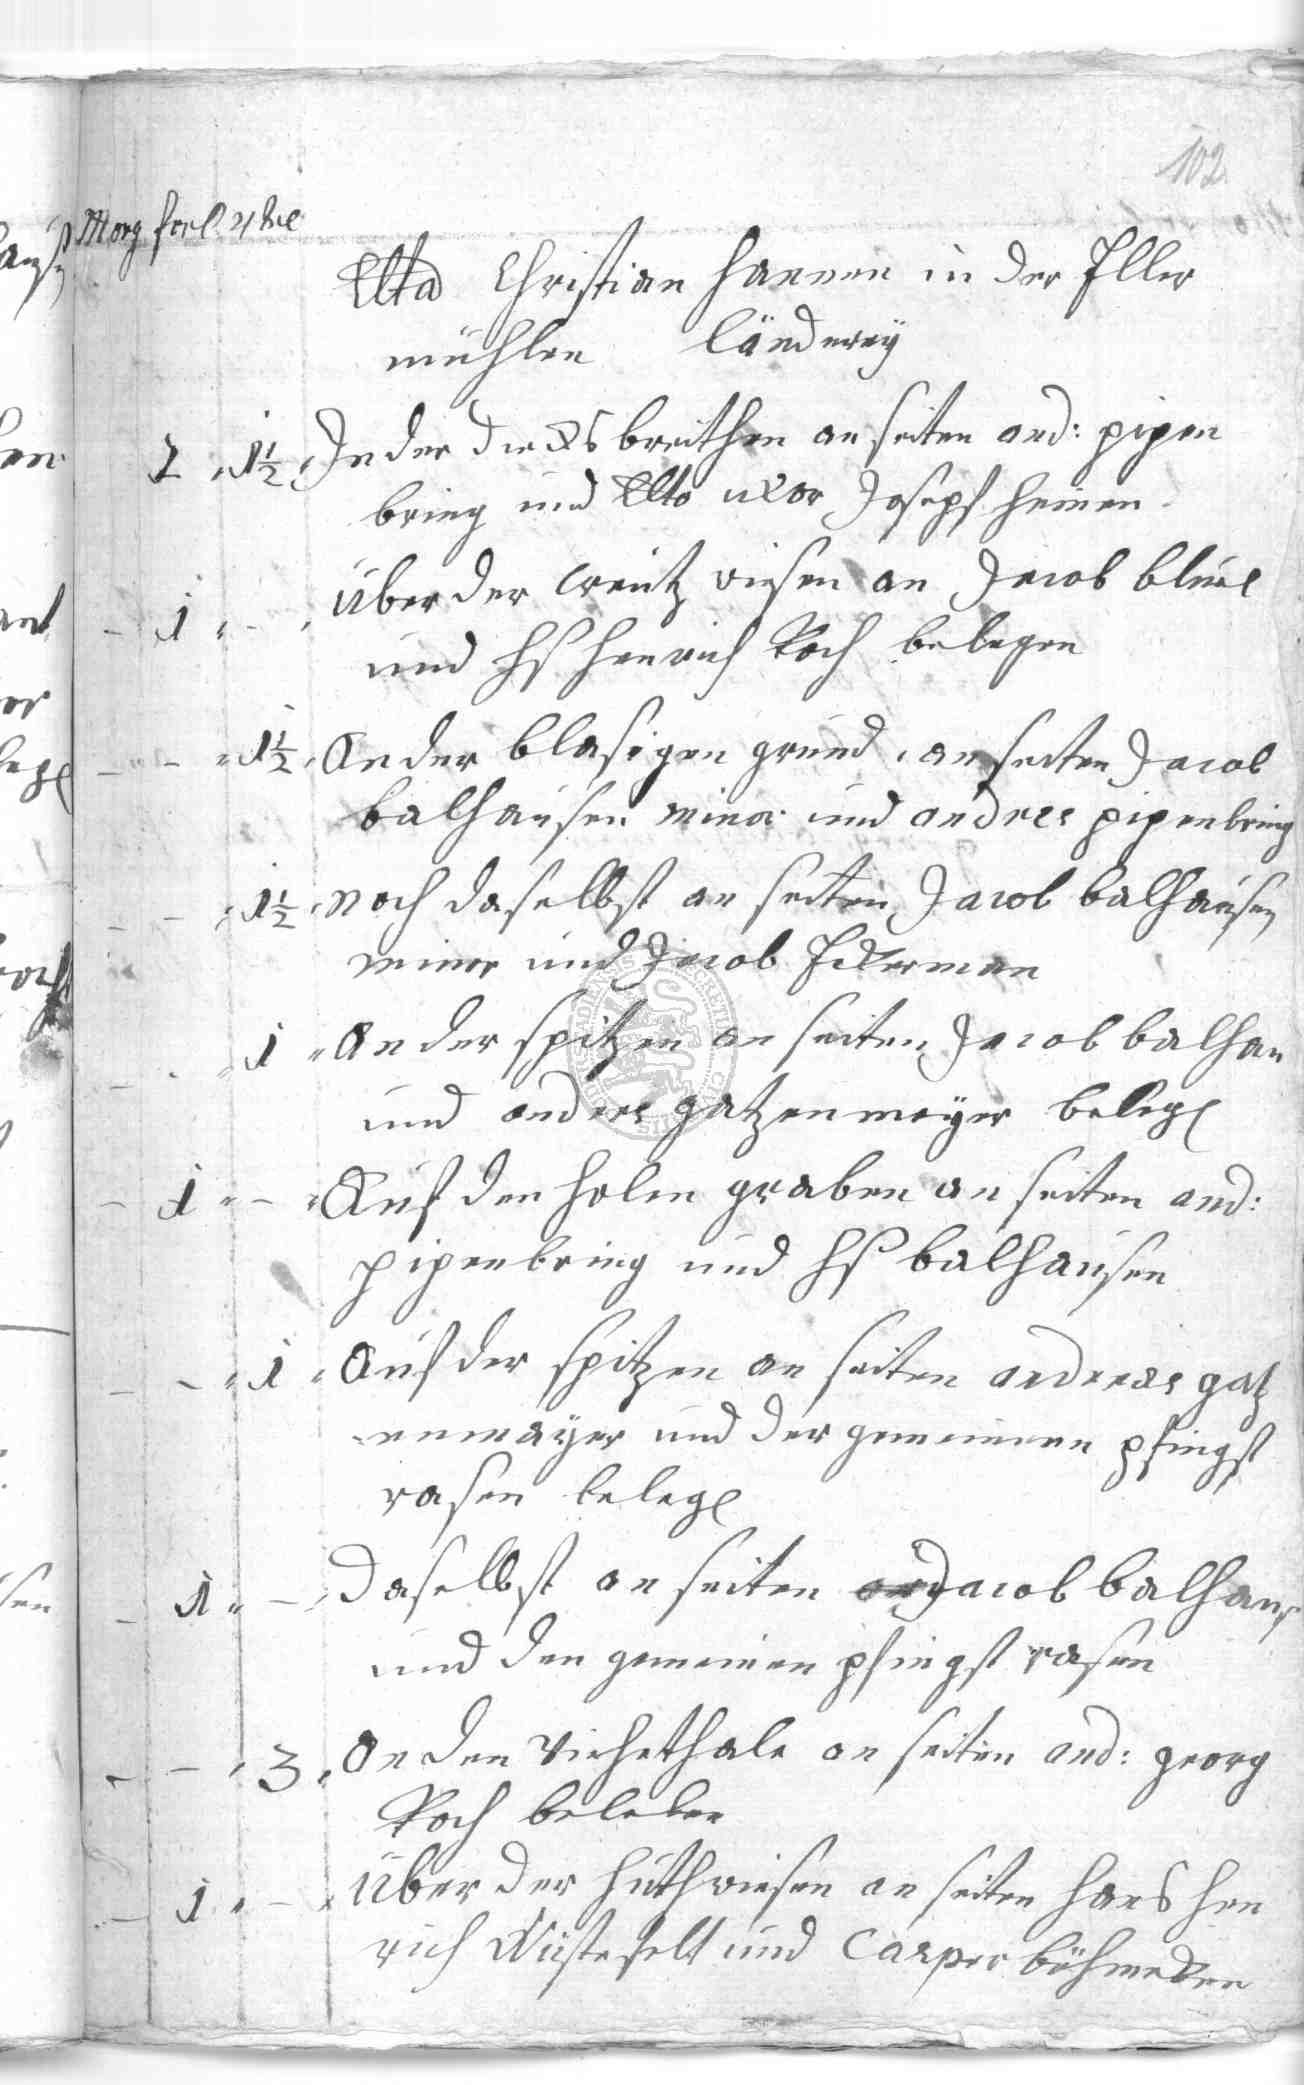 102
Morg ferl 4tel
Elta Christian Hannen in der Iller
mühlen Länderey
2 1½ In der diecks breithen an seiten and: pipen
bring und Elto uxor Joseph Heinen
- 1 - Über der Creutz wiesen an Jacob blume
und Hs Henrich Koch belegen
- - 1½ An der blasigen grund, an seiten Jacob
balhausen minor und andres pipenbring
- - 1½ noch daselbst an seiten Jacob balhausen
minor und Jacob Ickerman
- - 1 An der spitzen an seiten Jacob balhau
und andres gatzenmeyer beleg
- 1 - Auf den holen graben an seiten and:
pipenbring und Hs balhausen
- - 1 Auf der spitzen an seiten andreas gatz
enmayer und der gemeinen pfingst
rasen beleg
- 1 - daselbst an seiten Jacob balhaus
und den gemeinen pfingst rasen
- - 3 An den viehethale an seiten and: georg
Koch belegen
- 1 - Über der Huthwiesen an seiten Hans Hen
rich Wüstefelt und Casper